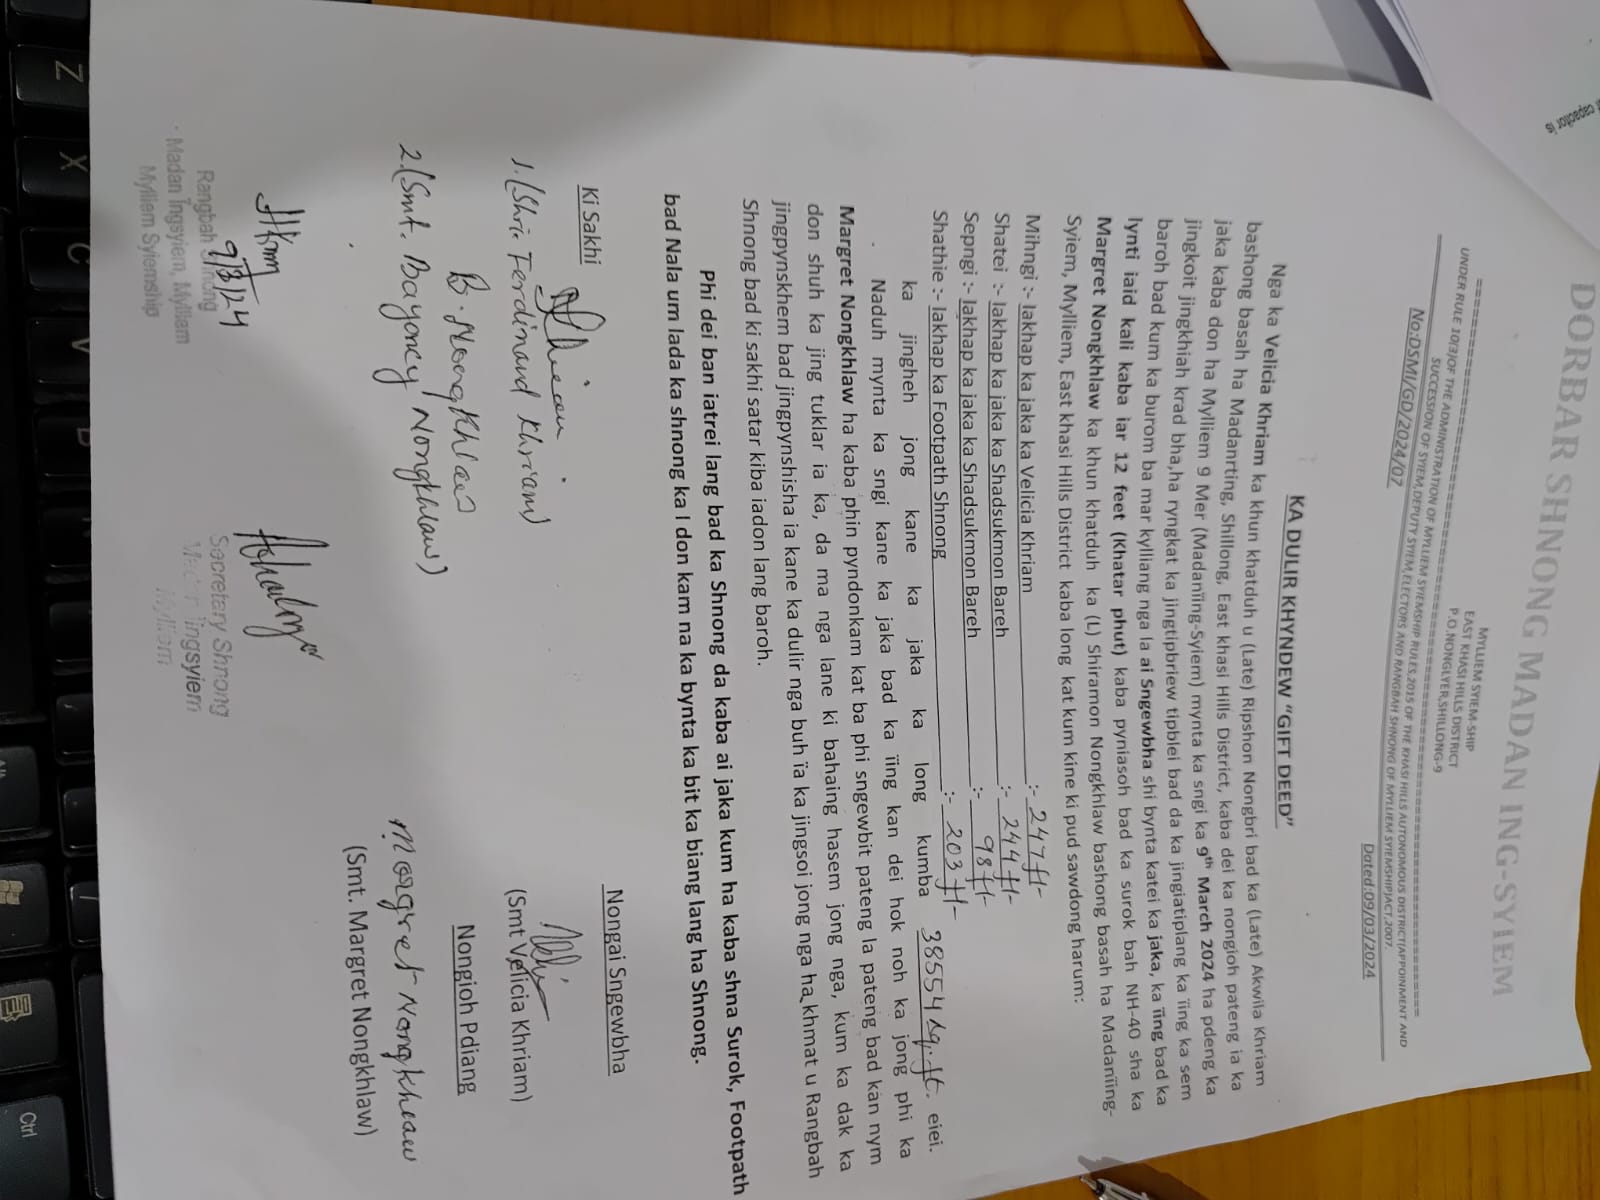 DORBAR SHNONG MADAN ING-SYIEM
MYLLIEM SYIEM-SHIP
EAST KHASI HILLS DISTRICT
P.O.NONGLYER,SHILLONG-9
UNDER RULE 10(3)OF THE ADMINISTRATION OF MYLLIEM SYIEMSHIP RULES,2015 OF THE KHASI HILLS AUTONOMOUS DISTRICT(APPOINMENT AND
SUCCESSION OF SYIEM,DEPUTY SYIEM,ELECTORS AND RANGBAH SHNONG OF MYLLIEM SYIEMSHIP)ACT,2007.
No:DSMI/GD/2024/07 Dated:09/03/2024
KA DULIR KHYNDEW "GIFT DEED"
Nga ka Velicia Khriam ka khun khatduh u (Late) Ripshon Nongbri bad ka (Late) Akwila Khriam
bashong basah ha Madanrting, Shillong, East khasi Hills District, kaba dei ka nongioh pateng ia ka
jaka kaba don ha Mylliem 9 Mer (Madaniïng-Syiem) mynta ka sngi ka 9th March 2024 ha pdeng ka
jingkoit jingkhiah krad bha,ha ryngkat ka jingtipbriew tipblei bad da ka jingiatiplang ka ïing ka sem
baroh bad kum ka burom ba mar kylliang nga la ai Sngewbha shi bynta katei ka jaka, ka ïing bad ka
lynti iaid kali kaba iar 12 feet (Khatar phut) kaba pyniasoh bad ka surok bah NH-40 sha ka
Margret Nongkhlaw ka khun khatduh ka (L) Shiramon Nongkhlaw bashong basah ha Madaniïng-
Syiem, Mylliem, East khasi Hills District kaba long kat kum kine ki pud sawdong harum:
Mihngi :- Iakhap ka jaka ka Velicia Khriam :- 247 ft-
Shatei :- Iakhap ka jaka ka Shadsukmon Bareh :- 244 ft-
Sepngi :- Iakhap ka jaka ka Shadsukmon Bareh :- 98 ft-
Shathie :- Iakhap ka Footpath Shnong :- 203 ft-
ka jingheh jong kane ka jaka ka long kumba 38554 sq.ft. eiei.
Naduh mynta ka sngi kane ka jaka bad ka ïing kan dei hok noh ka jong phi ka
Margret Nongkhlaw ha kaba phin pyndonkam kat ba phi sngewbit pateng la pateng bad kan nym
don shuh ka jing tuklar ia ka, da ma nga lane ki bahaing hasem jong nga, kum ka dak ka
jingpynskhem bad jingpynshisha ia kane ka dulir nga buh ïa ka jingsoi jong nga ha khmat u Rangbah
Shnong bad ki sakhi satar kiba iadon lang baroh.
Phi dei ban iatrei lang bad ka Shnong da kaba ai jaka kum ha kaba shna Surok, Footpath
bad Nala um lada ka shnong ka I don kam na ka bynta ka bit ka biang lang ha Shnong.
Ki Sakhi
Nongai Sngewbha
1.(Shri Ferdinand Khriam)
(Smt Velicia Khriam)
B. Nongkhlaw
Nongioh Pdiang
2.(Smt. Bayoncy Nongkhlaw)
Morgret Nongkhlaw
(Smt. Margret Nongkhlaw)
9/3/24
Rangbah Shnong
Madan Ïngsyiem, Mylliem
Mylliem Syiemship
Secretary Shnong
ïngsyiem
Mylliem
capacitor is
Z
X
C
V
B
Alt
Ctrl